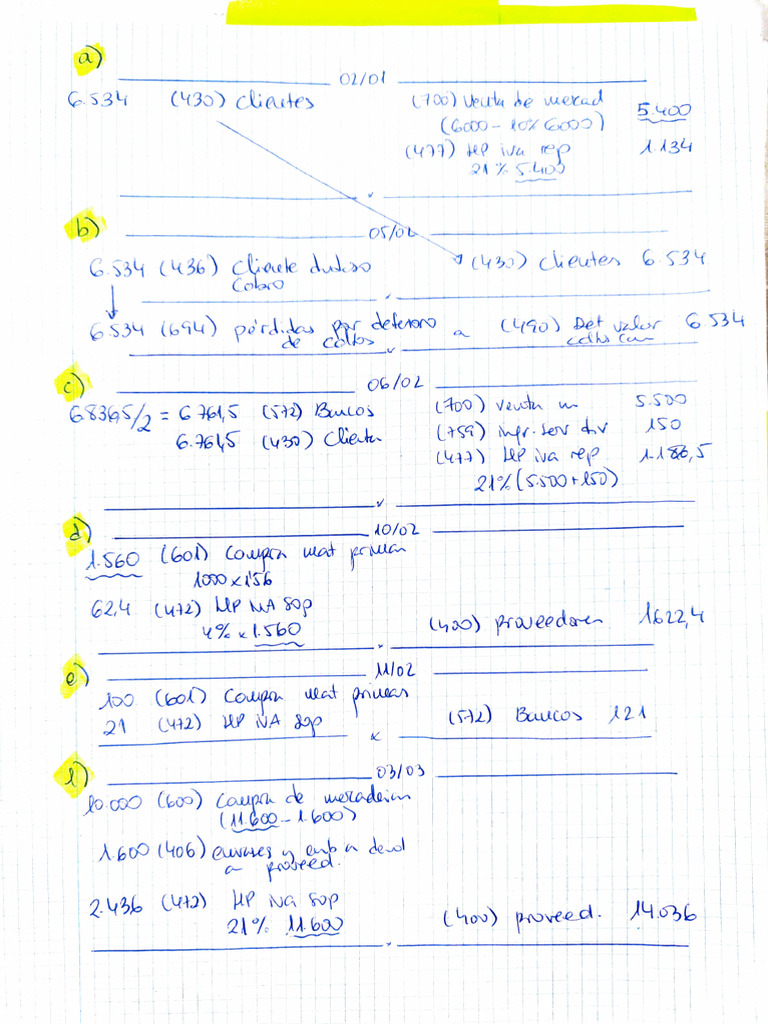 a)
02/01
6.534 (430) Clientes (700) Venta de mercad 5.400
(6000 - 10% 6000)
(477) HP iva rep 1.134
21% 5.400
b)
05/02
6.534 (436) Cliente dudoso cobro (430) clientes 6.534
6.534 (694) pérdidas por deterioro de cdtos a (490) Det valor cdtos com 6.534
c)
06/02
6.836,5/2 = 6.761,5 (572) Bancos (700) venta m 5.500
6.761,5 (430) Cliente (759) ingr. serv div 150
(477) HP iva rep 1.186,5
21% (5.500+150)
d)
10/02
1.560 (601) Compra mat primas
1000 x 1'56
62,4 (472) HP IVA Sop
4% x 1.560 (400) proveedores 1622,4
e)
11/02
100 (601) Compra mat primas
21 (472) HP IVA Sop (572) Bancos 121
f)
03/03
10.000 (600) Compra de mercaderias
(11.600 - 1.600)
1.600 (406) envases y emb a devol
a proveed.
2.436 (472) HP iva sop
21% 11.600 (400) proveed. 14.036